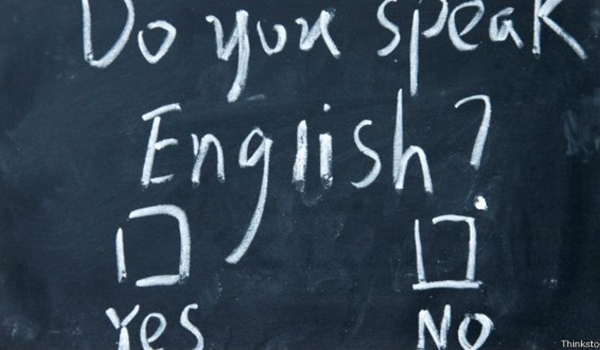 Do you speak
English?
Yes No
Thinksto